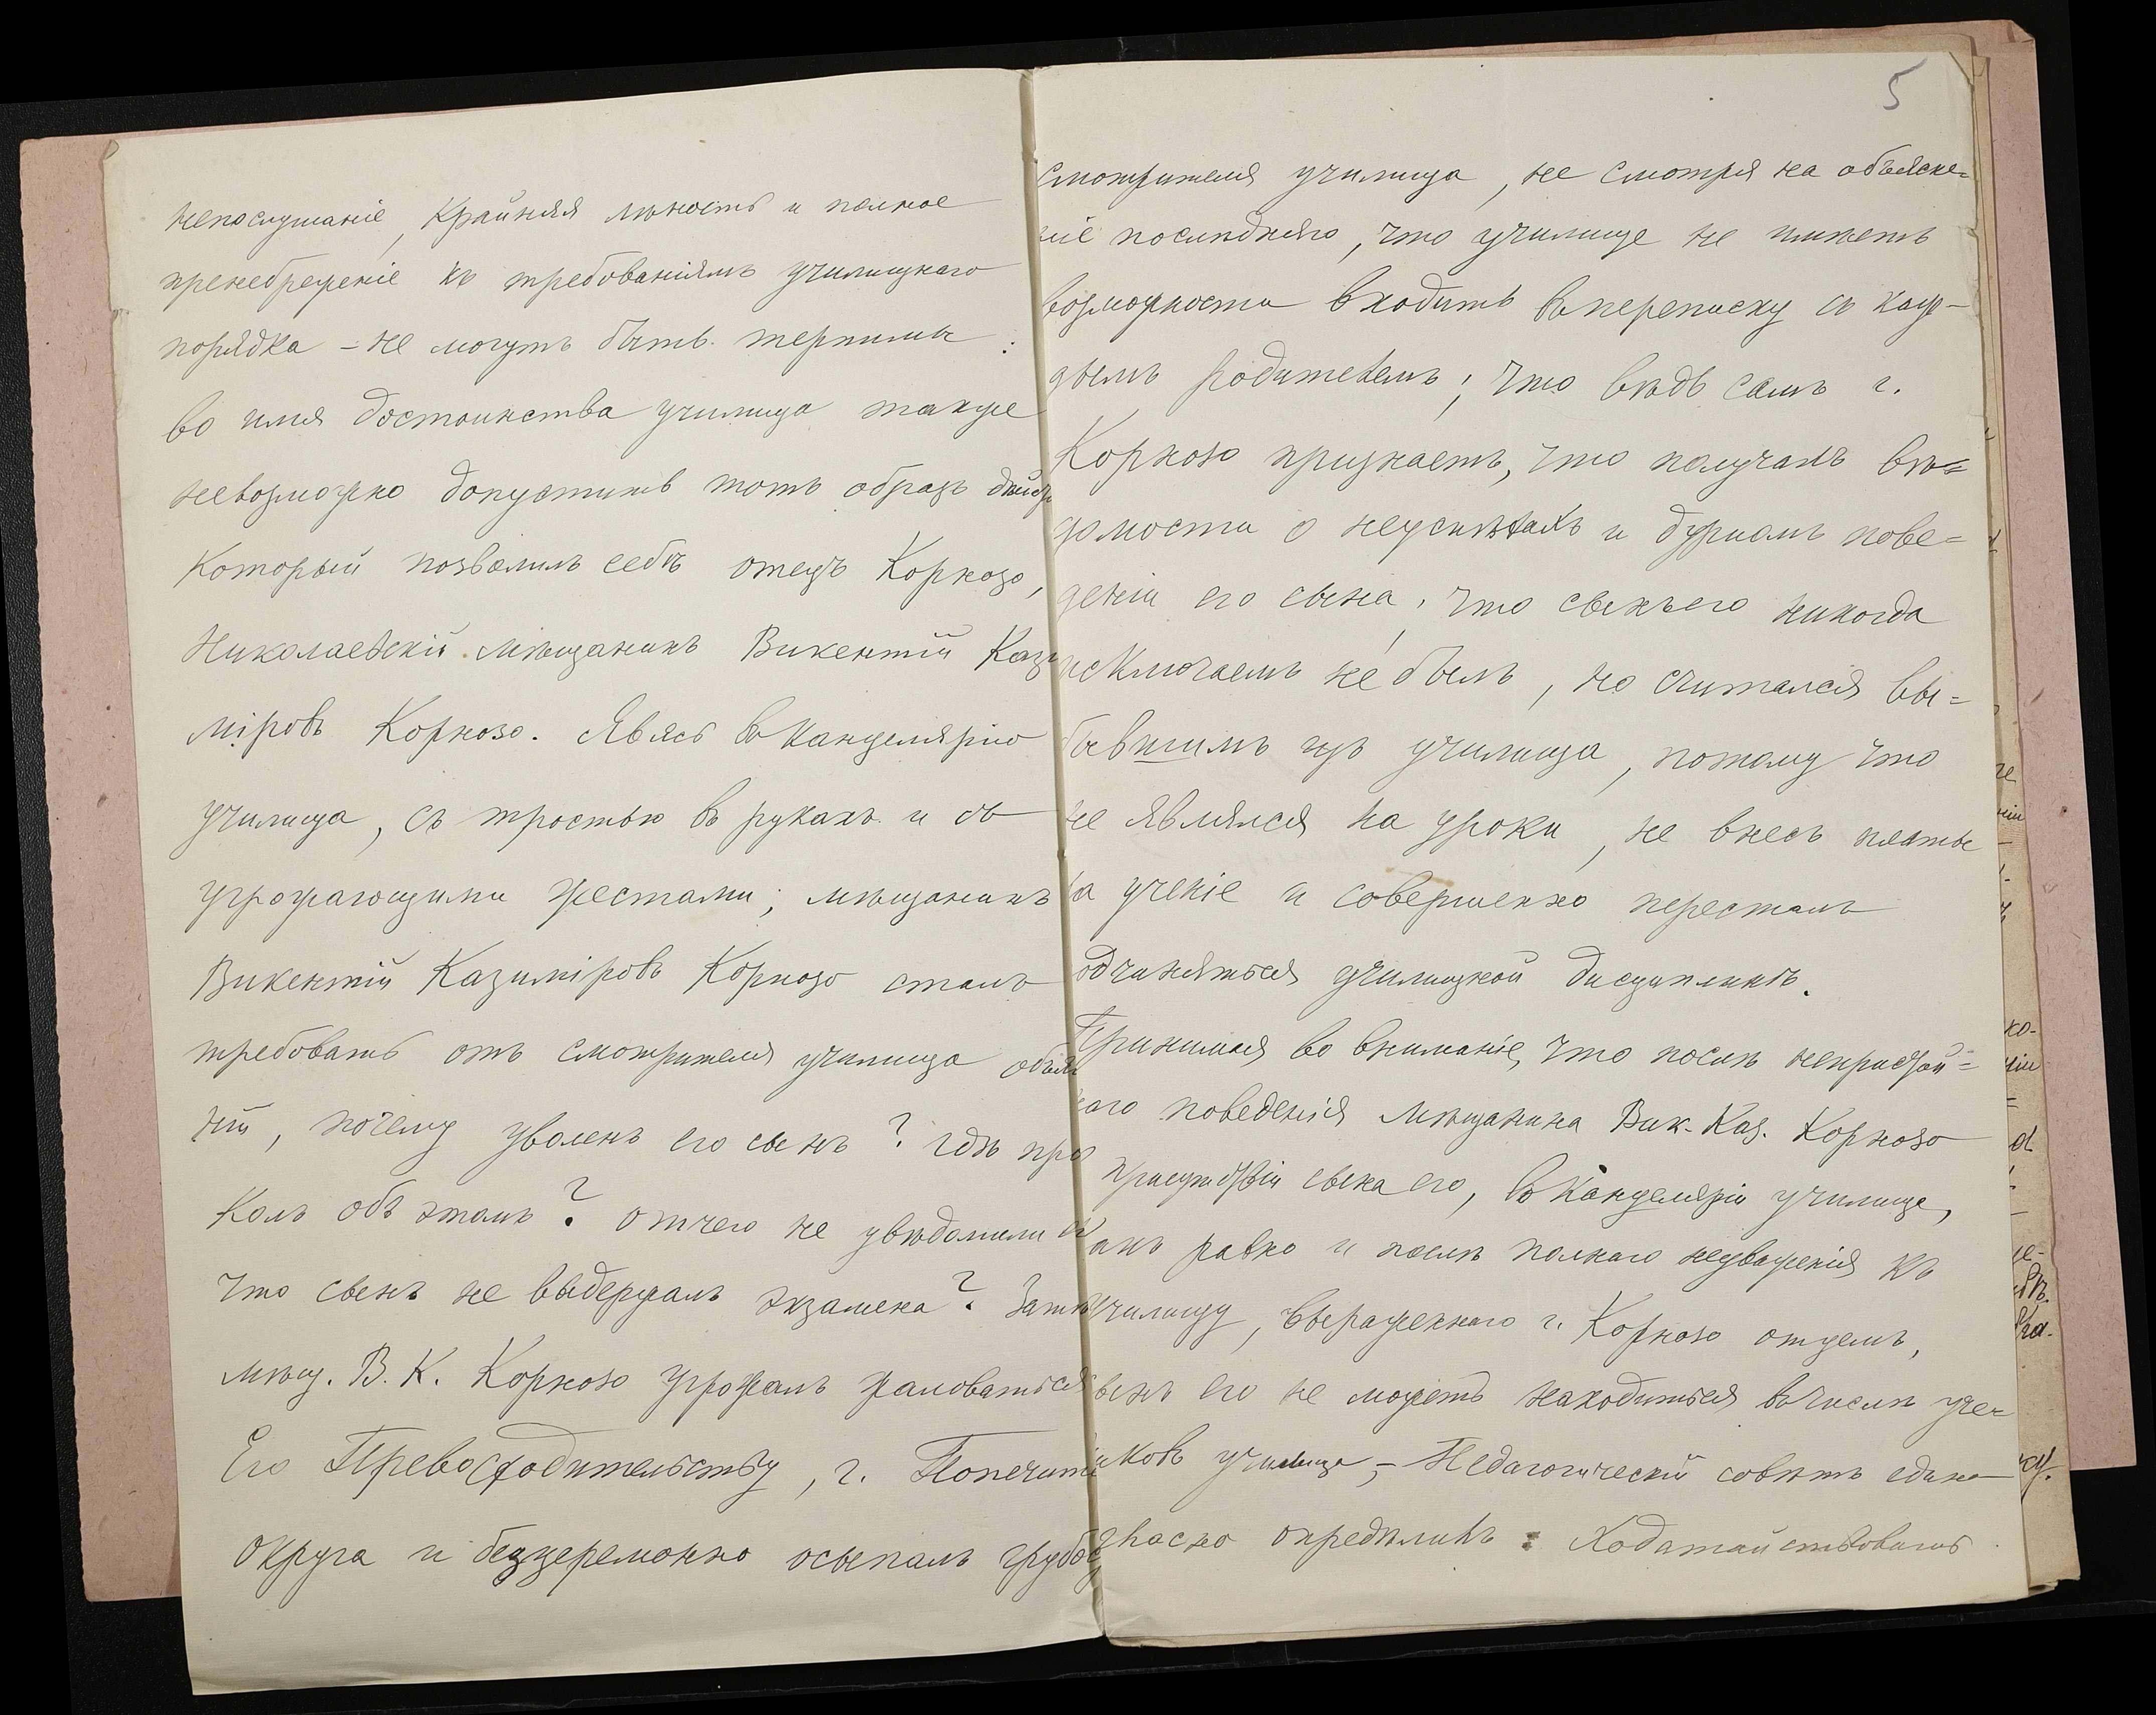 непослушаніе, крайняя лѣность и полное
пренебреженіе къ требованіямъ училищнаго
порядка – не могутъ быть терпимы:
во имя достоинства училища также
невозможно допустить тотъ образъ дѣйст
который позволилъ себѣ отецъ Корнозо,
Николаевскій мѣщанинъ Викентій Кази
міровъ Корнозо. Явясь въ канцелярію
училища, съ тростью въ рукахъ и съ
угрожающими жестами; мѣщанинъ
Викентій Казиміровъ Корнозо сталъ
требовать отъ смотрителя училища объя
ній, почему уволенъ его сынъ? гдѣ про
колъ объ этомъ? отчего не увѣдомили
что сынъ не выдержалъ экзамена? Затѣ
мѣщ. В. К. Корнозо угрожалъ жаловаться
Его Превосходительству, г. Попечит
округа и безцеремонно осыпалъ грубос
5
смотрителя училища, не смотря на объясне=
ніе послѣдняго, что училище не имѣетъ
возможности входить въ переписку съ каж-
дымъ родителемъ; что вѣдь самъ г.
Корнозо признаетъ, что получалъ вѣ=
домости о неуспѣхахъ и дурномъ пове=
деніи его сына; что сынъ его никогда
исключаемъ не былъ, но считался вы=
бывшимъ изъ училища, потому что
не являлся на уроки, не внесъ платы
за ученіе и совершенно пересталъ
одчиняться училищной дисциплинѣ.
Принимая во вниманіе, что послѣ непристой=
наго поведенія мѣщанина Вик. Каз. Корнозо
присутствіи сына его, въ канцеляріи училища,
акъ равно и послѣ полнаго неуваженія къ
училищу, выраженнаго г. Корнозо отцемъ,
сынъ его не можетъ находиться въ числѣ уче=
иковъ училища, – Педагогическій совѣтъ едино
гласно опредѣлилъ: Ходатайствовать